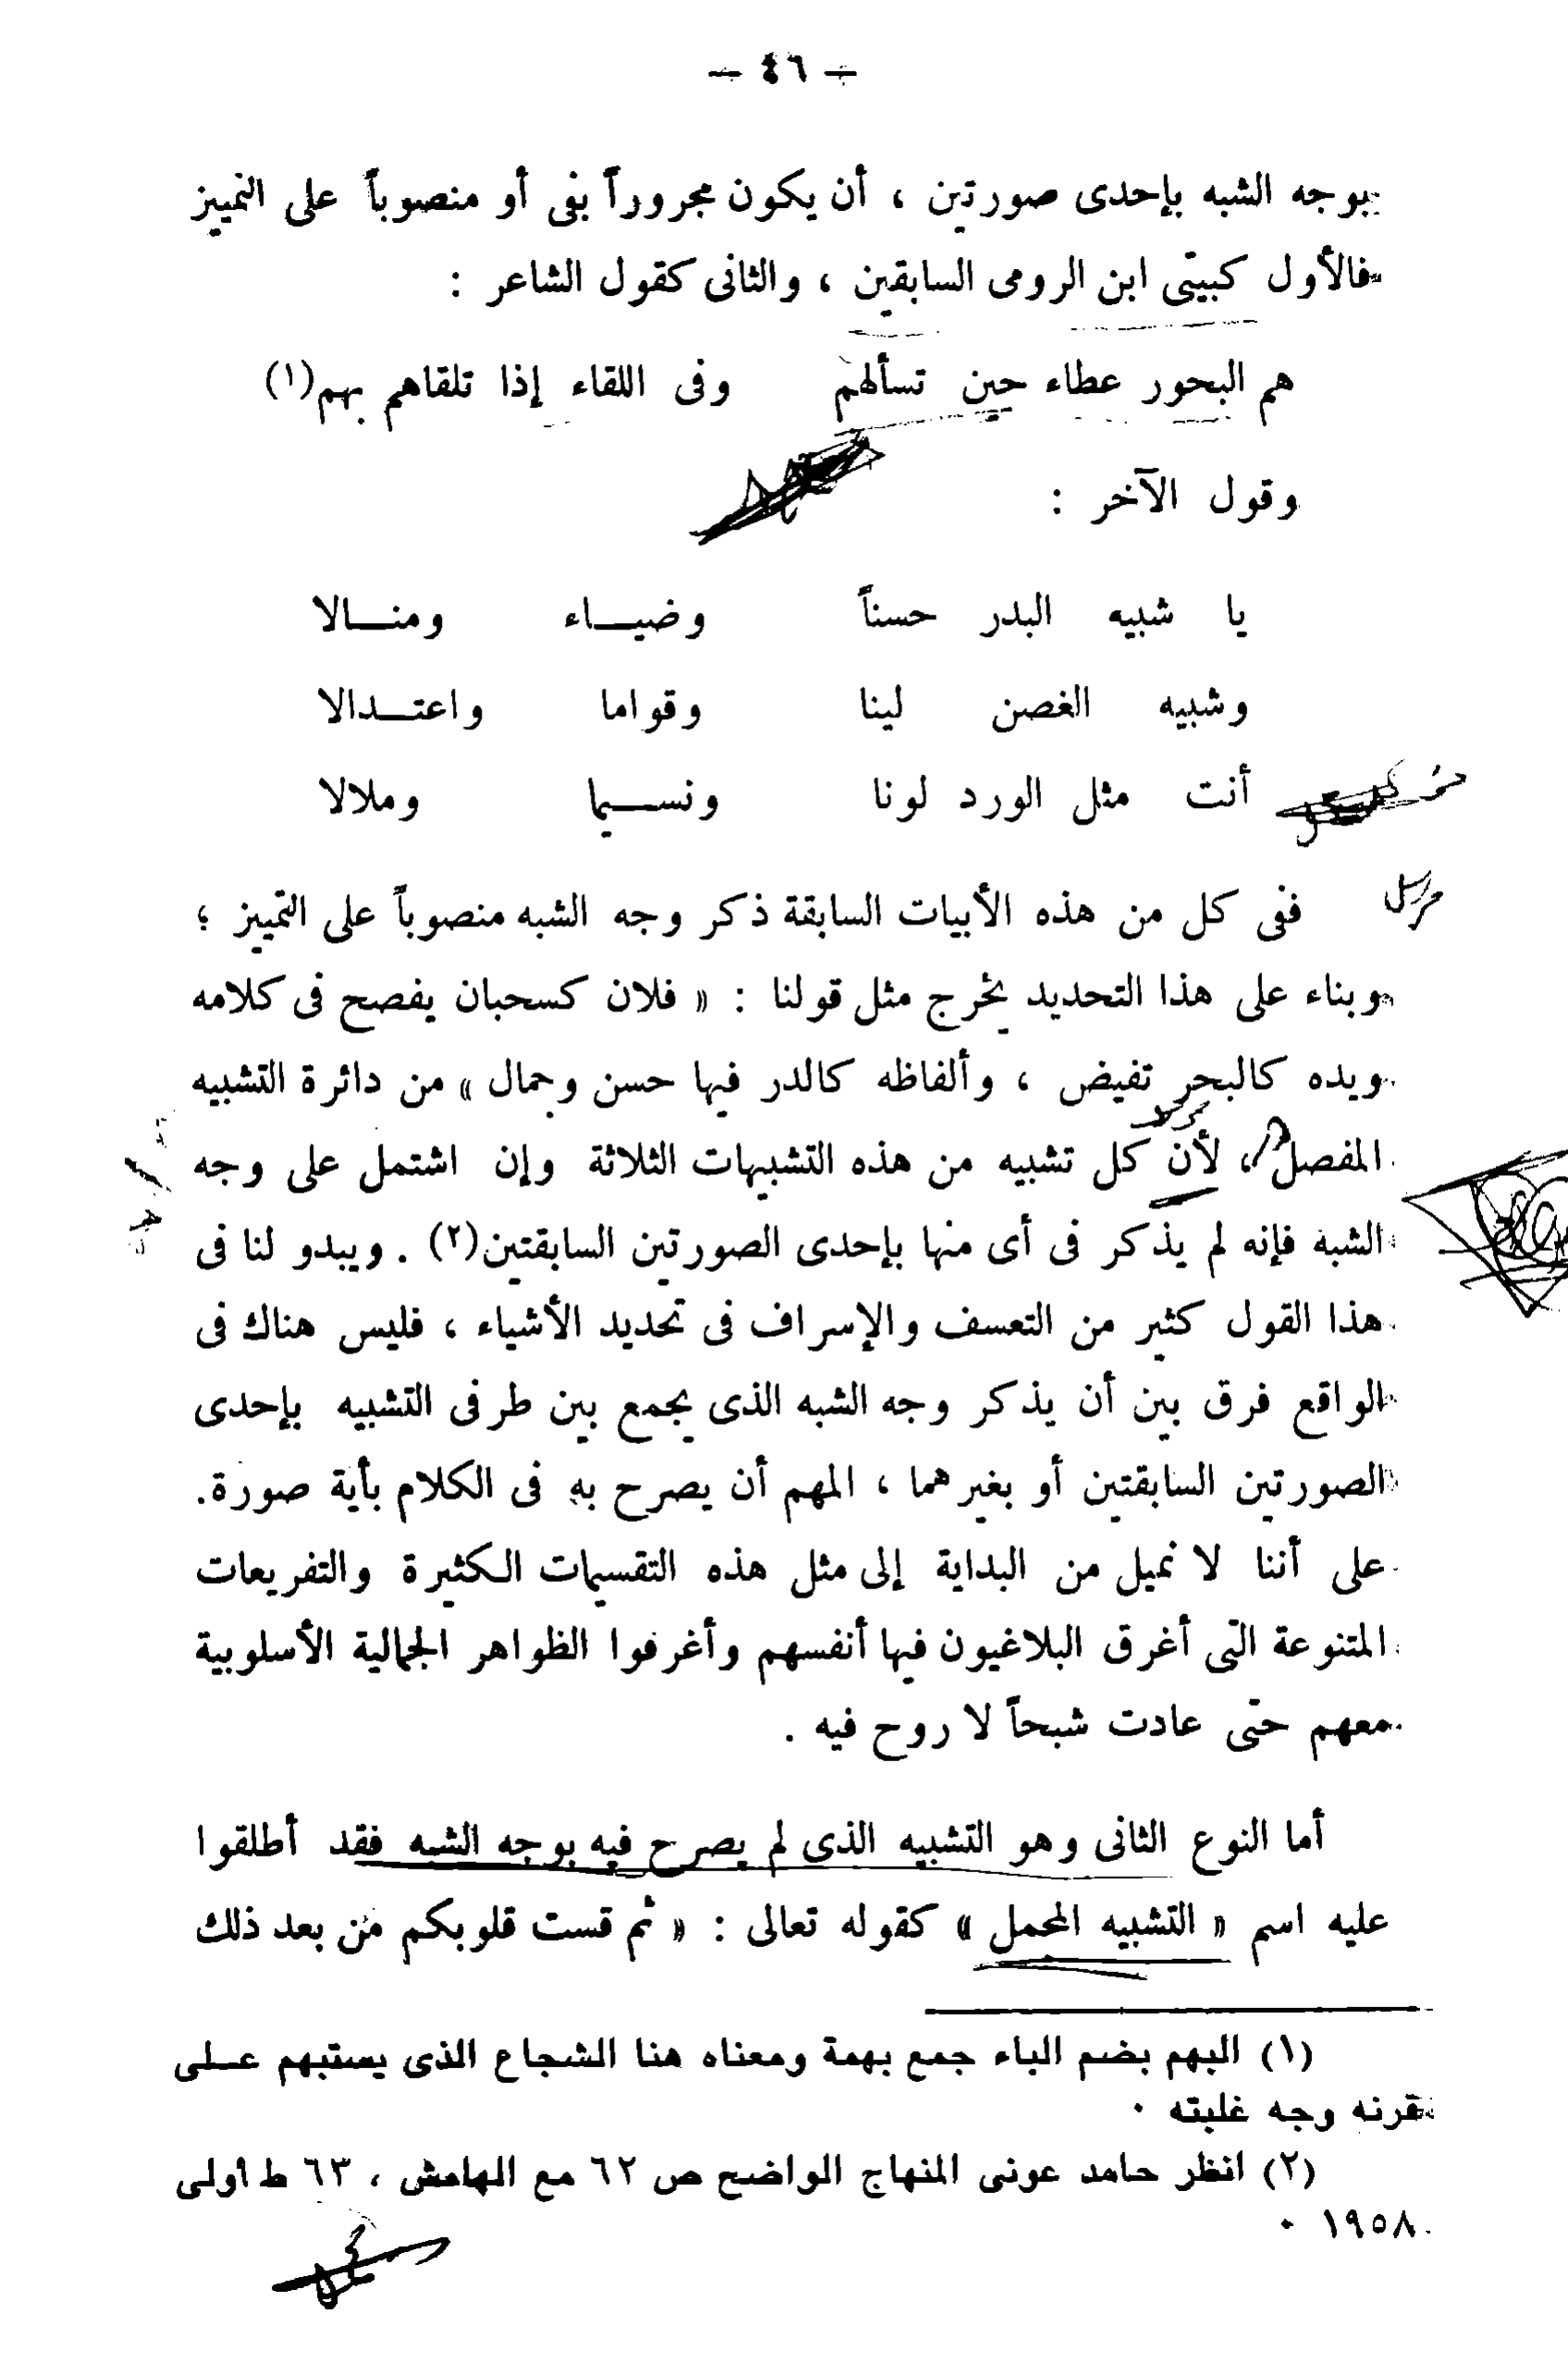 — ٤٦ —
بوجه الشبه بإحدى صورتين ، أن يكون مجروراً بفى أو منصوباً على التمييز
فالأول كبيتى ابن الرومى السابقين ، والثانى كقول الشاعر :
هم البحور عطاء حين تسألهم وفى اللقاء إذا تلقاهم بهم(١)
وقول الآخر :
يا شبيه البدر حسناً وضيـــاء ومنـــالا
وشبيه الغصن لينا وقواما واعتـــدالا
أنت مثل الورد لونا ونســـيما وملالا
مرسل
ففى كل من هذه الأبيات السابقة ذكر وجه الشبه منصوباً على التمييز ؛
وبناء على هذا التحديد يخرج مثل قولنا : « فلان كسحبان يفصح فى كلامه
ويده كالبحر تفيض ، وألفاظه كالدر فيها حسن وجمال » من دائرة التشبيه
المفصل ، لأن كل تشبيه من هذه التشبيهات الثلاثة وإن اشتمل على وجه
الشبه فإنه لم يذكر فى أى منها بإحدى الصورتين السابقتين(٢) . ويبدو لنا فى
هذا القول كثير من التعسف والإسراف فى تحديد الأشياء ، فليس هناك فى
الواقع فرق بين أن يذكر وجه الشبه الذى يجمع بين طرفى التشبيه بإحدى
الصورتين السابقتين أو بغيرهما ، المهم أن يصرح به فى الكلام بأية صورة.
على أننا لا نميل من البداية إلى مثل هذه التقسيمات الكثيرة والتفريعات
المتنوعة التى أغرق البلاغيون فيها أنفسهم وأغرقوا الظواهر الجمالية الأسلوبية
معهم حتى عادت شبحاً لا روح فيه .
أما النوع الثانى وهو التشبيه الذى لم يصرح فيه بوجه الشبه فقد أطلقوا
عليه اسم « التشبيه المجمل » كقوله تعالى : « ثم قست قلوبكم من بعد ذلك
(١) البهم بضم الباء جمع بهمة ومعناه هنا الشجاع الذى يستبهم عـلى
قرنه وجه غلبته ٠
(٢) انظر حامد عونى المنهاج الواضح ص ٦٢ مع الهامش ، ٦٣ ط اولى
١٩٥٨ ٠